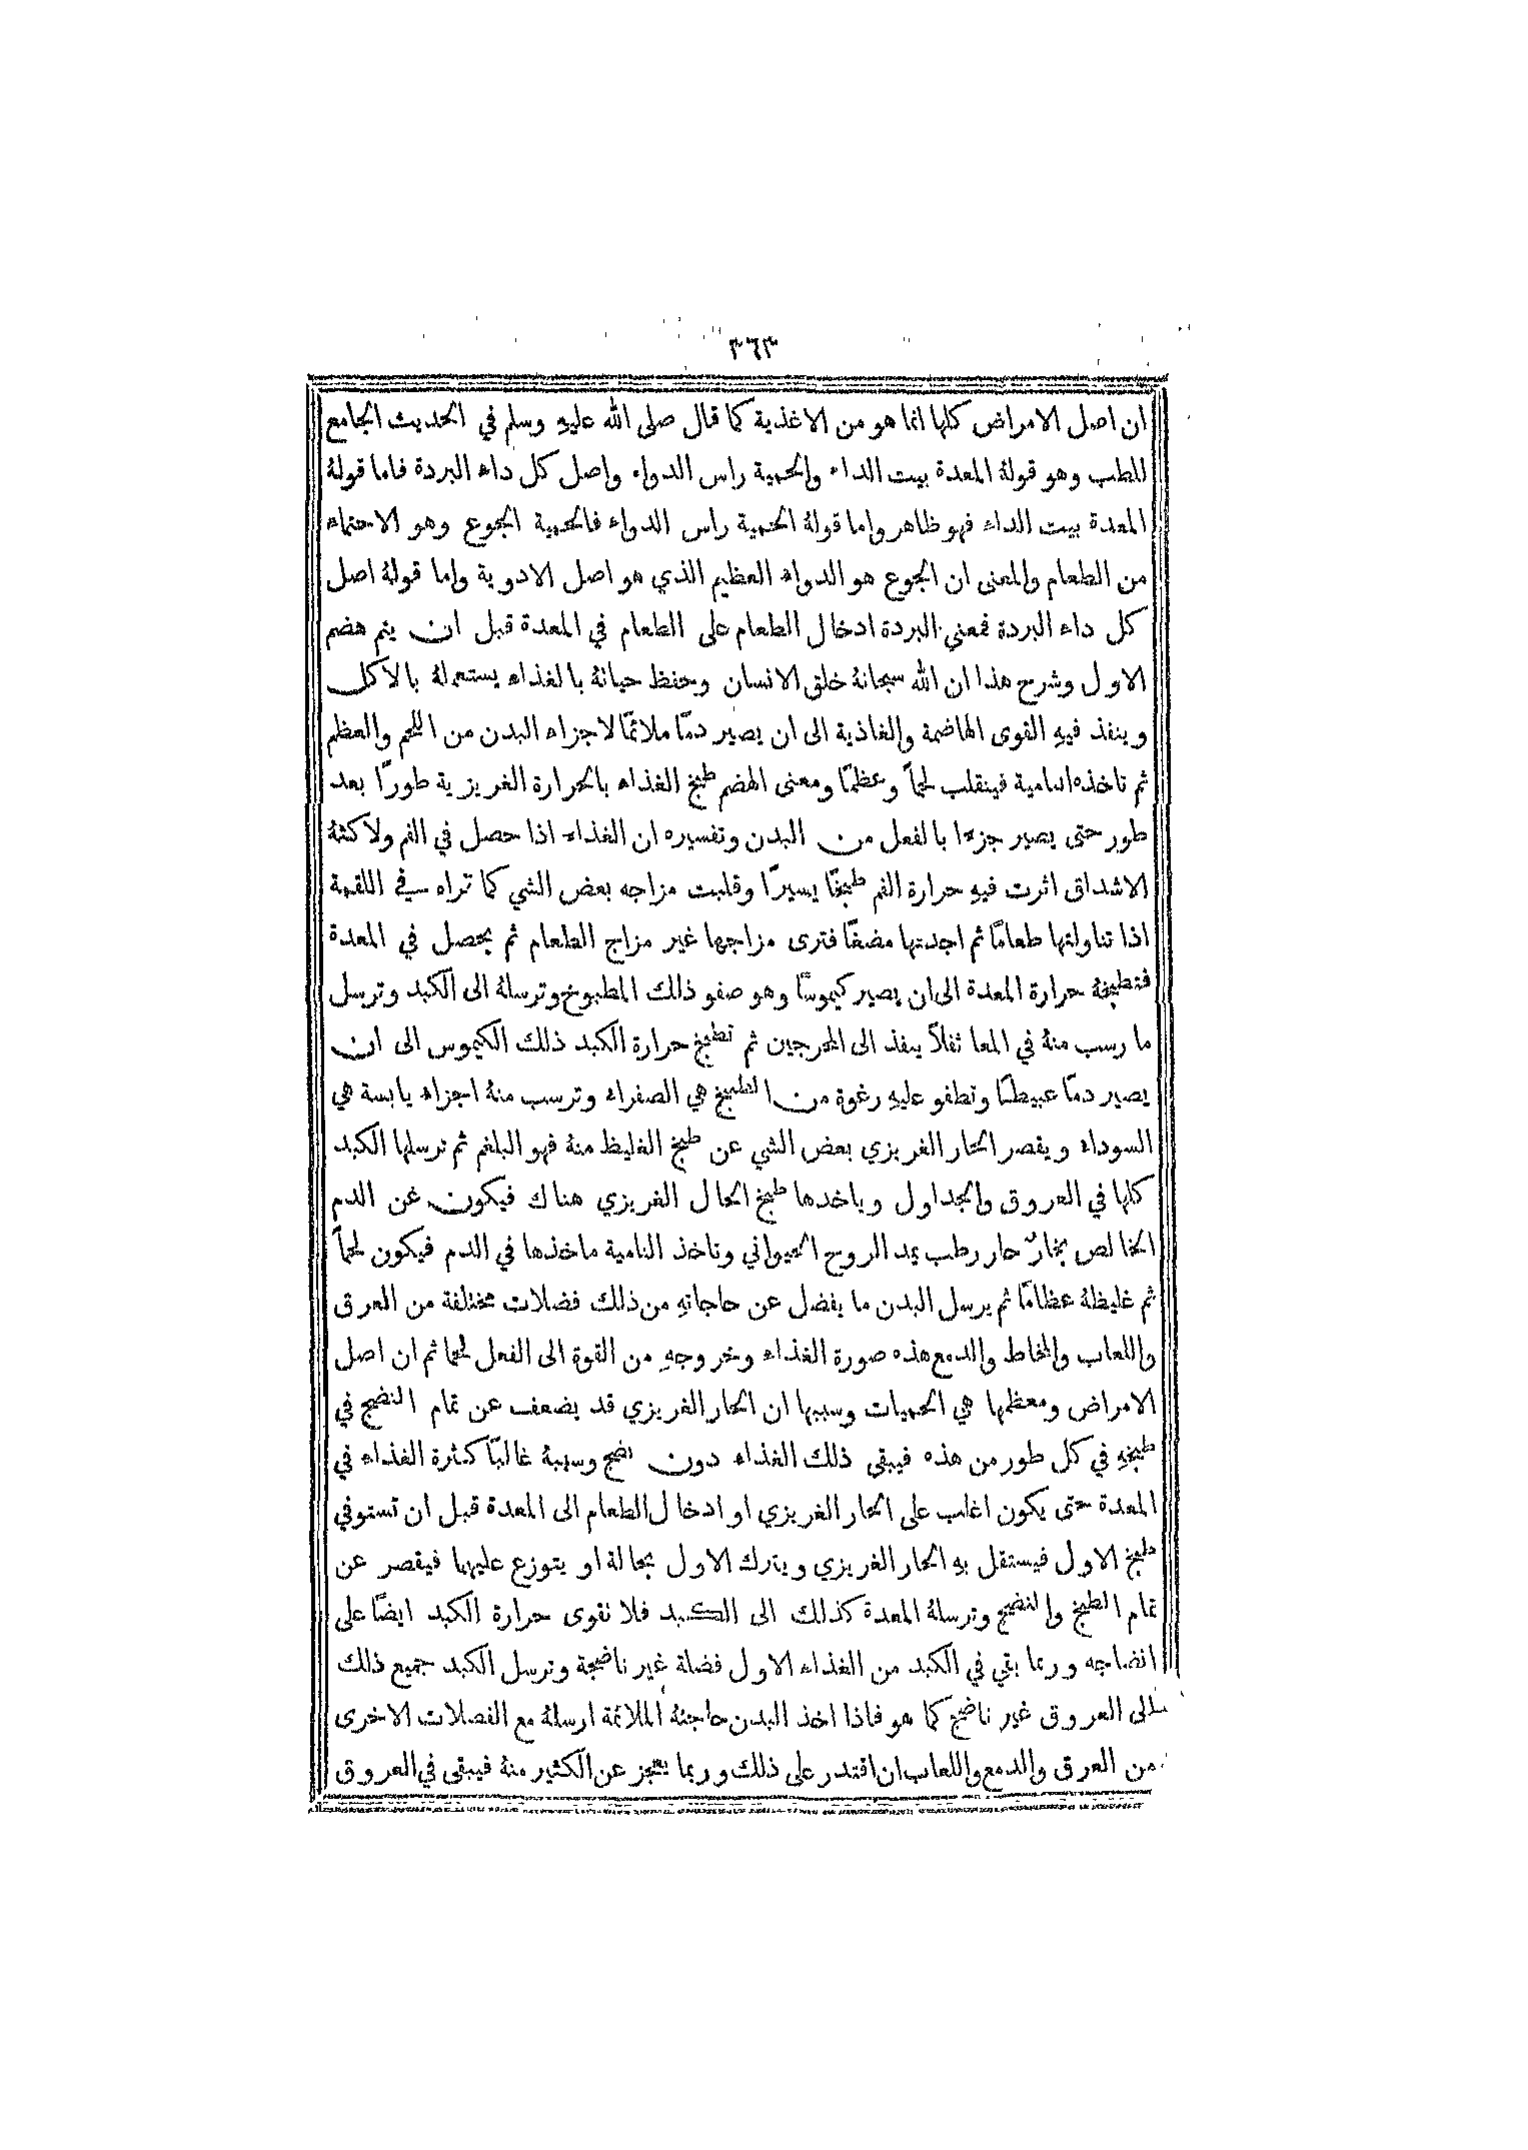 ٣٦٣
ان اصل الامراض كلها انما هو من الاغذية كما قال صلى الله عليهِ وسلم في الحديث الجامع
للطب وهو قولهُ المعدة بيت الداء والحمية راس الدواء واصل كل داء البردة فاما قولهُ
المعدة بيت الداء فهو ظاهر واما قولهُ الحمية راس الدواء فالحمية الجوع وهو الاحتماء
من الطعام والمعنى ان الجوع هو الدواء العظيم الذي هو اصل الادوية واما قولهُ اصل
كل داء البردة فمعنى البردة ادخال الطعام على الطعام في المعدة قبل ان يتم هضم
الاول وشرح هذا ان الله سبحانهُ خلق الانسان وحفظ حياتهُ بالغذاء يستعملهُ بالاكل
وينفذ فيهِ القوى الهاضمة والغاذية الى ان يصير دمًا ملائمًا لاجزاء البدن من اللحم والعظم
ثم تاخذه النامية فينقلب لحمًا وعظمًا ومعنى الهضم طبخ الغذاء بالحرارة الغريزية طورًا بعد
طور حتى يصير جزءا بالفعل من البدن وتفسيره ان الغذاء اذا حصل في الفم ولاكتهُ
الاشداق اثرت فيهِ حرارة الفم طبخًا يسيرًا وقلبت مزاجه بعض الشي كما تراه في اللقمة
اذا تناولتها طعامًا ثم اجدتها مضغًا فترى مزاجها غير مزاج الطعام ثم يحصل في المعدة
فتطبخهُ حرارة المعدة الى ان يصير كيموسًا وهو صفو ذلك المطبوخ وترسلهُ الى الكبد وترسل
ما رسب منهُ في المعا ثفلاً ينفذ الى المخرجين ثم تطبخ حرارة الكبد ذلك الكيموس الى ان
يصير دمًا عبيطًا وتطفو عليهِ رغوة من الطبخ هي الصفراء وترسب منهُ اجزاء يابسة هي
السوداء ويقصر الحار الغريزي بعض الشي عن طبخ الغليظ منهُ فهو البلغم ثم ترسلها الكبد
كلها في العروق والجداول وياخذها طبخ الحال الغريزي هناك فيكون عن الدم
الخالص بخارٌ حار رطب يمد الروح الحيواني وتاخذ النامية ماخذها في الدم فيكون لحمًا
ثم غليظهُ عظامًا ثم يرسل البدن ما يفضل عن حاجاتهِ من ذلك فضلات مختلفة من العرق
واللعاب والمخاط والدمع هذه صورة الغذاء وخروجهِ من القوة الى الفعل لحما ثم ان اصل
الامراض ومعظمها هي الحميات وسببها ان الحار الغريزي قد يضعف عن تمام النضج في
طبخهِ في كل طور من هذه فيبقى ذلك الغذاء دون نضج وسببهُ غالبًا كثرة الغذاء في
المعدة حتى يكون اغلب على الحار الغريزي او ادخال الطعام الى المعدة قبل ان تستوفي
طبخ الاول فيستقل بهِ الحار الغريزي ويترك الاول بحالهُ او يتوزع عليهما فيقصر عن
تمام الطبخ والنضج وترسلهُ المعدة كذلك الى الكبد فلا تقوى حرارة الكبد ايضًا على
انضاجه وربما بقي في الكبد من الغذاء الاول فضلة غير ناضجة وترسل الكبد جميع ذلك
الى العروق غير ناضج كما هو فاذا اخذ البدن حاجتهُ الملائمة ارسلهُ مع الفضلات الاخرى
من العرق والدمع واللعاب ان اقتدر على ذلك وربما يعجز عن الكثير منهُ فيبقى في العروق